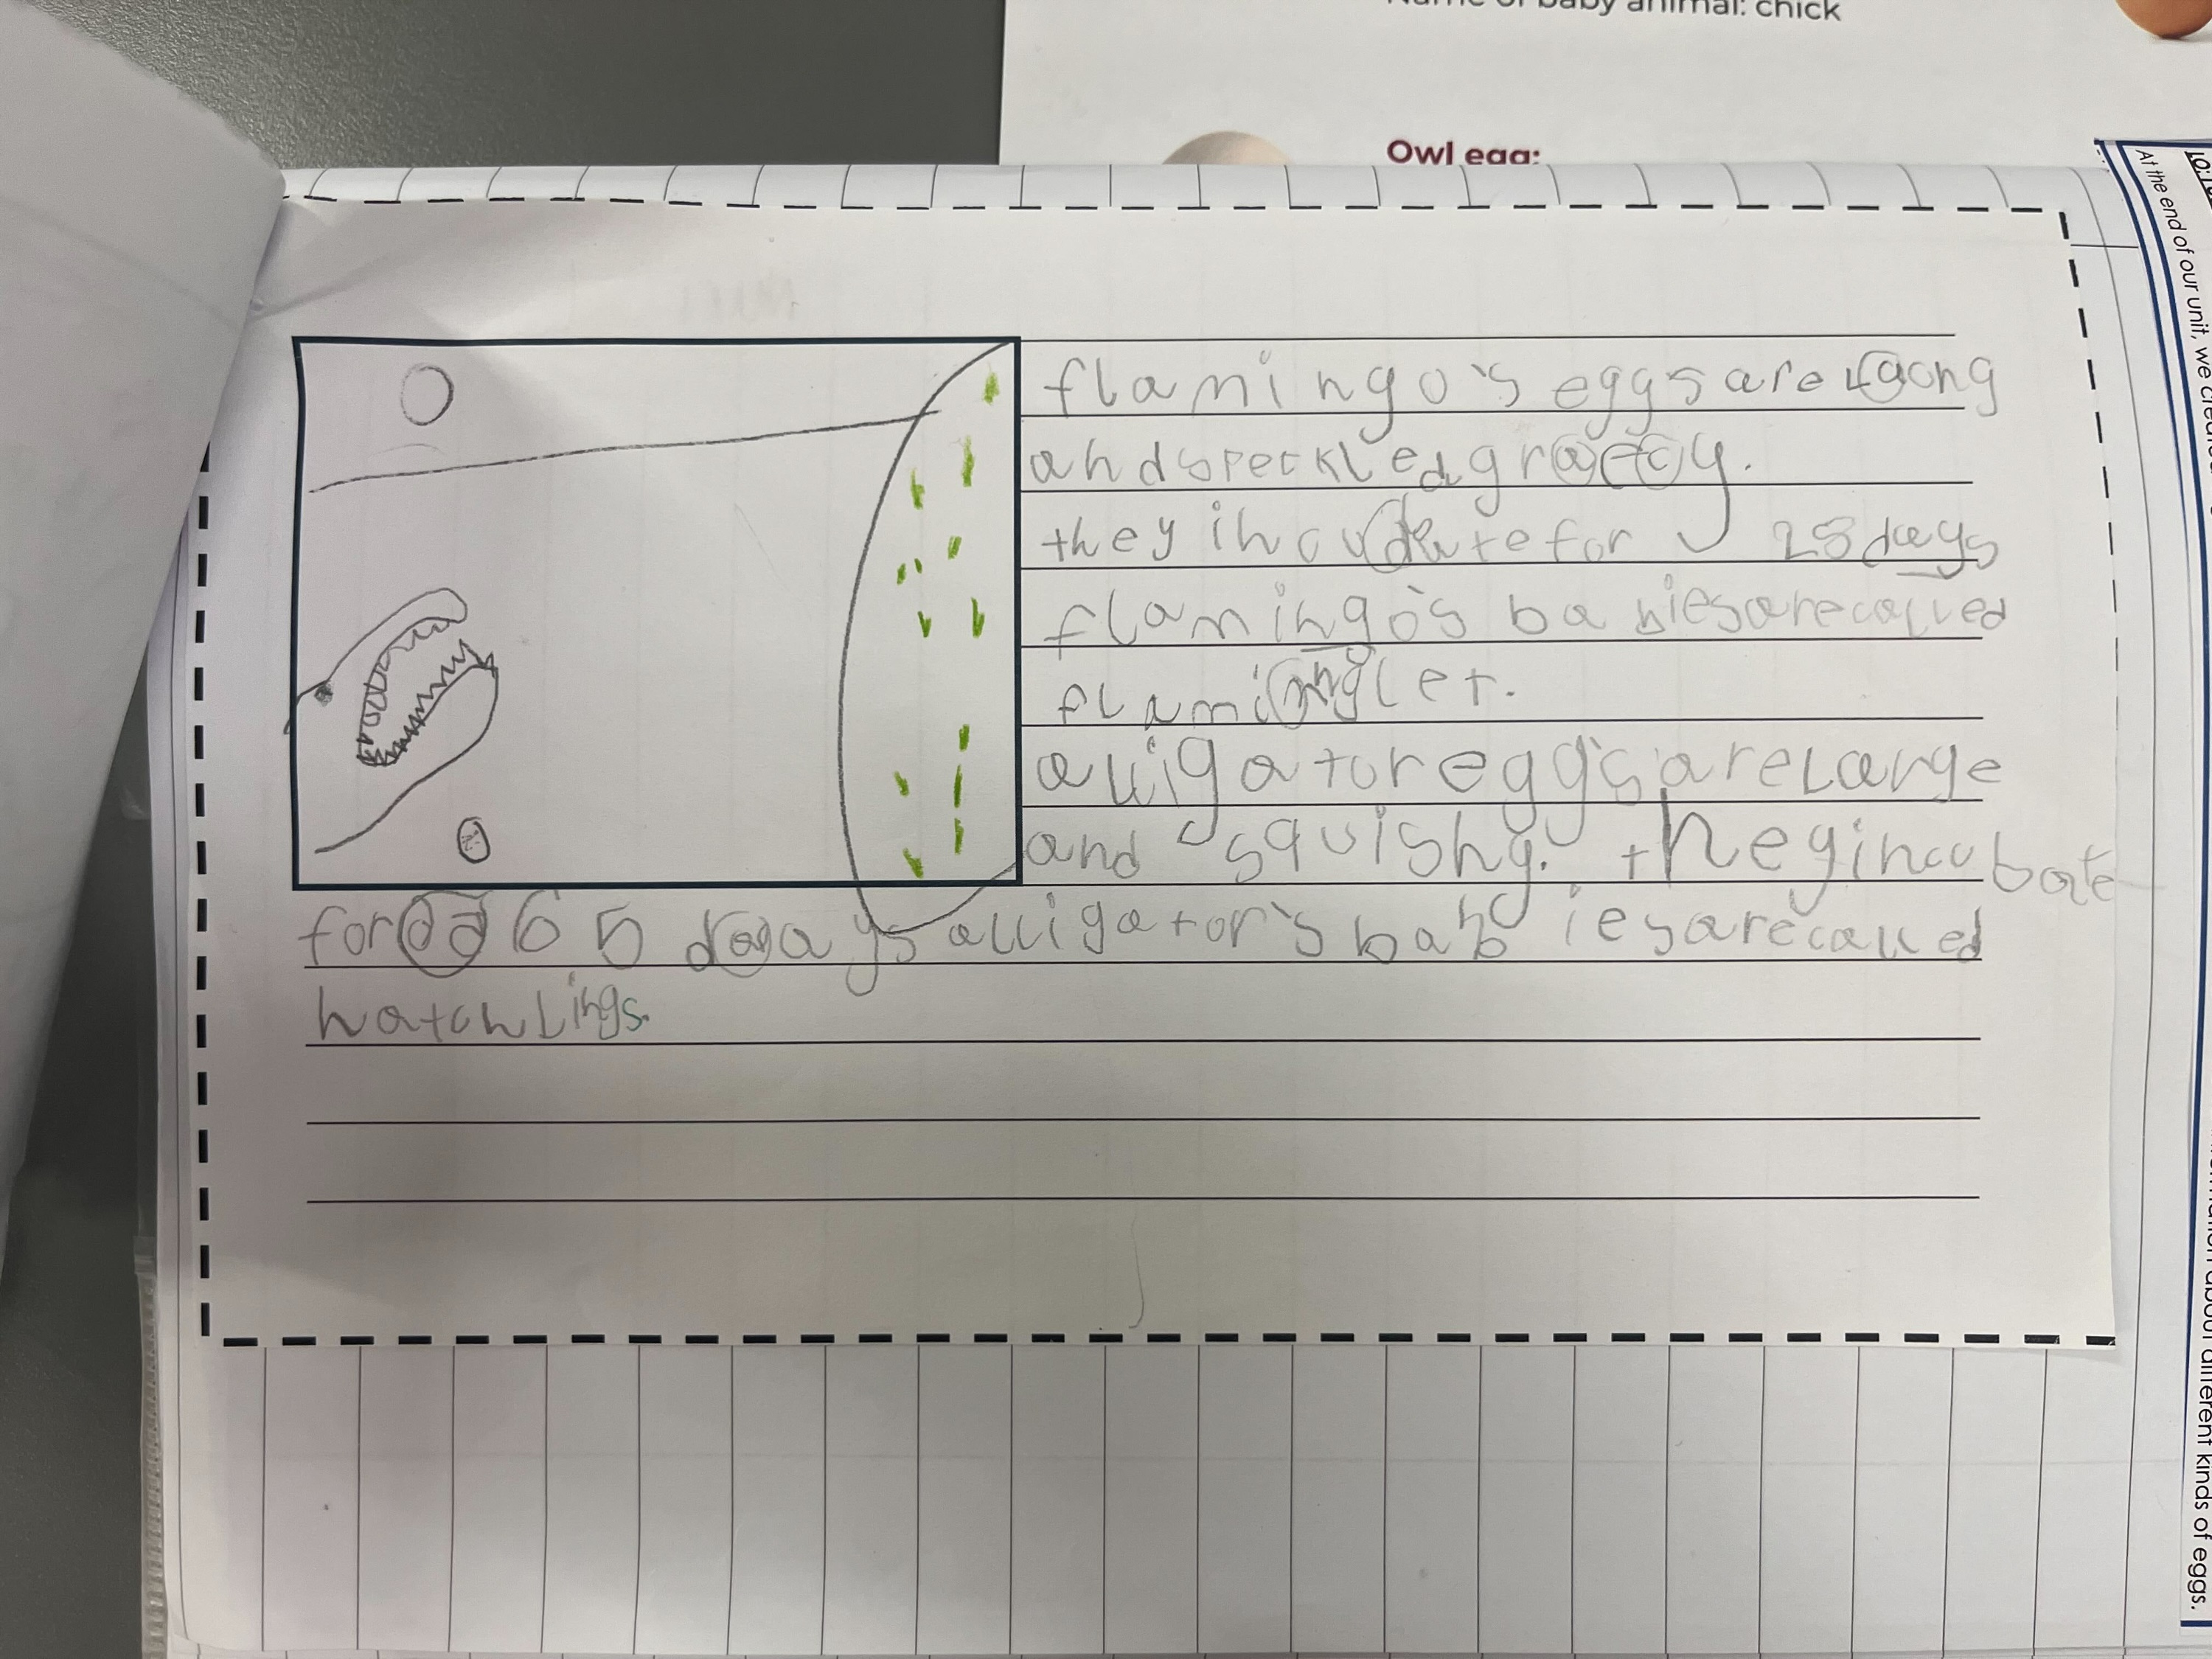 Name of baby animal: chick
Owl egg:
flamingo's eggs are long
and speckled grey.
they incubate for 28 days
flamingo's babies are called
flaminglet.
alligator egg's are large
and squishy. they incubate
for 65 days alligator's babies are called
hatchlings.
At the end of our unit, we
different kinds of eggs.